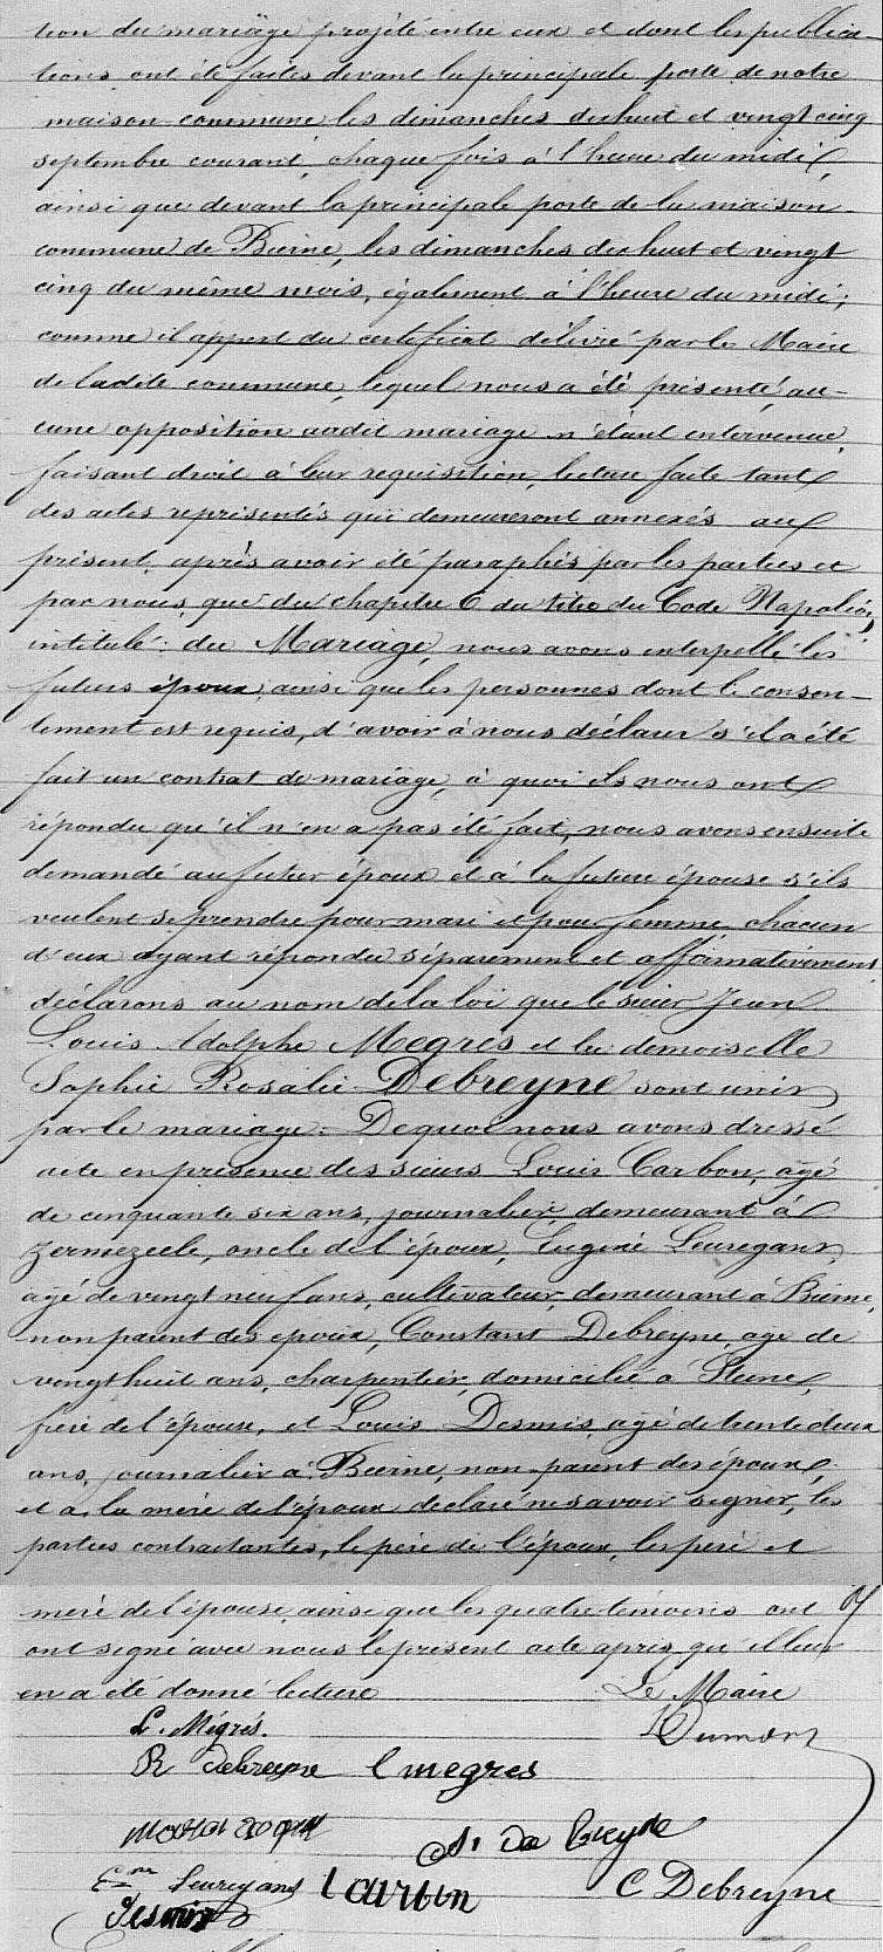 tion du mariage projété entre eux et dont les publica-
tions ont été faites devant la principale porte de notre
maison commune les dimanches dix huit et vingt cinq
septembre courant, chaque fois à l'heure du midi,
ainsi que devant la principale porte de la maison
commune de Bierne, les dimanches dix huit et vingt
cinq du même mois, également à l'heure du midi;
comme il appert du certificat délivré par le Maire
de ladite commune, lequel nous a été présenté, au-
cune opposition audit mariage n'étant intervenue,
faisant droit à leur requisition, lecture faite tant
des actes représentés qui demeureront annexés au
présent, après avoir été paraphés par les parties et
par nous, que du chapitre 6 du titre du Code Napoléon,
intitulé: du Mariage, nous avons interpellé les
futurs époux, ainsi que les personnes dont le consen-
tement est requis, d'avoir à nous déclarer s'il a été
fait un contrat de mariage, à quoi ils nous ont
répondu qu'il n'en a pas été fait, nous avons ensuite
demandé au futur époux et à la future épouse s'ils
veulent se prendre pour mari et pour femme, chacun
d'eux ayant répondu séparément et affirmativement
déclarons au nom de la loi que le sieur Jean
Louis Adolphe Megrés et la demoiselle
Sophie Rosalie Debreyne sont unis
par le mariage. De quoi nous avons dressé
acte en présence des sieurs Louis Carbon, agé
de cinquante six ans, journalier, demeurant à
Zermezeele, oncle de l'époux, Eugène Leuregans,
agé de vingt neuf ans, cultivateur, demeurant à Bierne,
non parent des époux, Constant Debreyne, age de
vingt huit ans, charpentier, domicilié à Steene,
frère de l'épouse, et Louis Desmis, agé de trente deux
ans, journalier à Bierne, non parent des époux,
et a, la mère de l'époux declaré ne savoir signer, les
parties contractantes, le père de l'époux, les père et
mère de l'épouse, ainsi que les quatre témoins ont
ont signé avec nous le présent acte après qu'il leur
en a été donné lecture
Le Maire
L. Mégrés. Dumont
R debreyne l megres
S. De breyne
Leuregans Carbon C Debreyne
Desmis